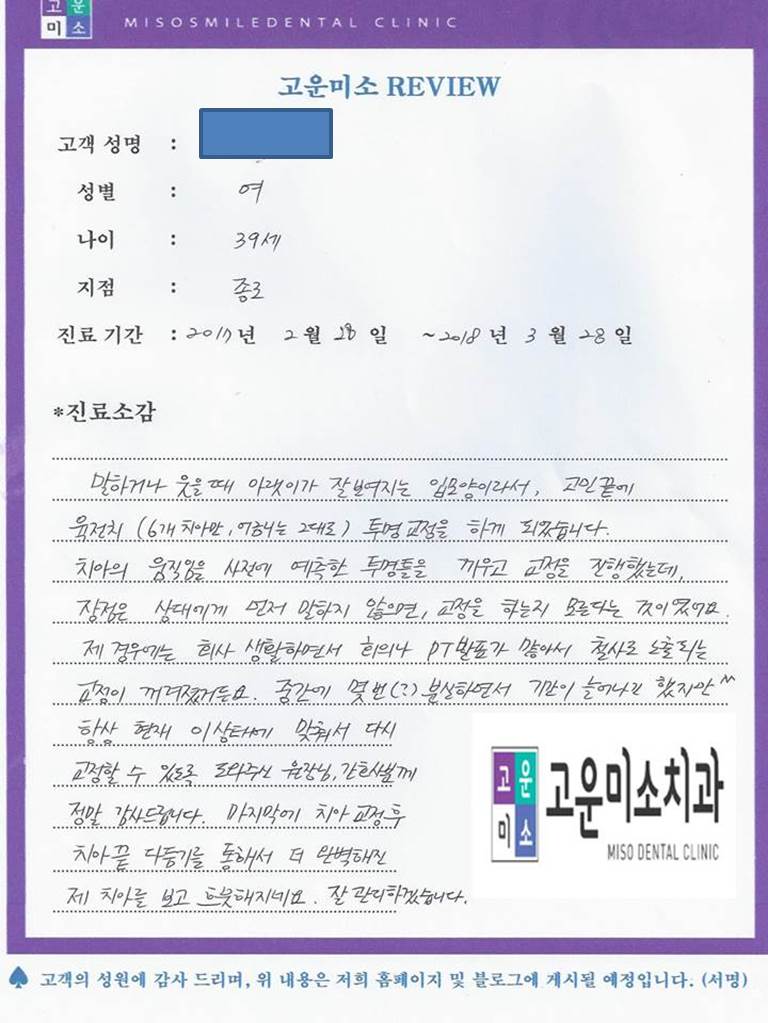 고운
미소
MISOSMILEDENTAL CLINIC
고운미소 REVIEW
고객 성명 :
성별 : 여
나이 : 39세
지점 : 종로
진료 기간 : 2017년 2월 28일 ~2018년 3월 28일
*진료소감
말하거나 웃을때 아랫이가 잘보여지는 입모양이라서, 고민끝에
육전치 (6개 치아만, 어금니는 2대로) 투명교정을 하게 되었습니다.
치아의 움직임을 사전에 예측한 투명틀을 끼우고 교정을 진행했는데,
장점은 상대에게 먼저 말하지 않으면, 교정을 하는지 모른다는 것이었어요.
제 경우에는 회사 생활하면서 회의나 PT발표가 많아서 철사로 노출되는
교정이 꺼려졌거든요. 중간에 몇번(?) 분실하면서 기간이 늘어나긴 했지만^^
항상 현재 이상태에 맞춰서 다시
교정할 수 있도록 도와주신 원장님, 간호사분께
정말 감사드립니다. 마지막에 치아교정후
치아끝 다듬기를 통해서 더 완벽해진
제 치아를 보고 흐뭇해지네요. 잘 관리하겠습니다.
고운
미소
고운미소치과
MISO DENTAL CLINIC
고객의 성원에 감사 드리며, 위 내용은 저희 홈페이지 및 블로그에 게시될 예정입니다. (서명)